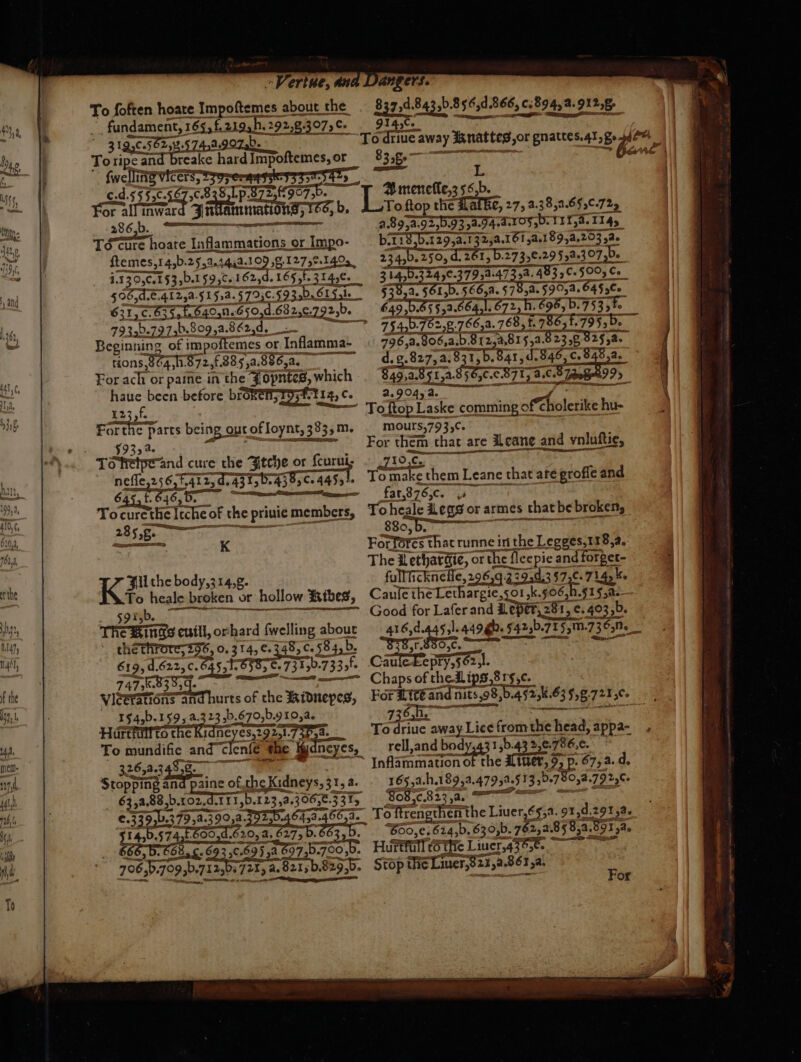 Vertue, and Dangers.
To soften hoate Impostemes about the
fundament, 165,f.219,h.292,g.307,c.
319,c.562,g.574,a.907,b.
To ripe and breake hard Impostemes, or
swelling vlcers,
c.d.555,c.567,c.838,l.p.872,f.907,b.
For all inward Inflammations, 166, b.
286,b.
To cure hoate Inflammations or Impo-
stemes,14,b.25,a.44,a.109,g.127,c.140,
i.130,c.153,b.159,c.162,d.165,f.314,c.
506,d.e.412,a.515,a.579,c.593,b.615,i.
631,c.635,f.640,n.650,d.682,c.792,b.
793,b.797,b.809,a.862,d.
Beginning of impostemes or Inflamma-
tions,864,h.872,f.885,a.886,a.
For ach or paine in the Joyntes, which
haue been before broken,195,f.114, c.
123,f.
For the parts being out of Ioynt,383, m.
593,a.
To helpe and cure the Itche or scurui-
nesse,256,f.412,d.431,b.438,c.445,l.
645,f.646,b.
To cure the Itche of the priuie members,
285,g.
K
Kill the body,314,g.
To heale broken or hollow Kibes,
591,b.
The Kings euill, or hard swelling about
the throte,296, o. 314, c. 348, c. 584, b.
619, d.622, c.645,l.658, c.731,b.733,f.
747,k.838,q.
Vlcerations and hurts of the Kidneyes,
154,b.159, a.323,b.670,b.910,a.
Hurtfull to the Kidneyes,292,l.73
To mundifie and clense the Kidneyes,
326,a.348,g.
Stopping and paine of the Kidneys, 31, a.
63,a.88,b.102,d.111,b.123,a.306,c.331,
c.339,b.379,a.390,a.392,b.464,a.466,a.
514,b.574,f.600,d.620, a. 627, b. 663, b.
666, b. 668, c. 693,c.695,a 697,b.700,b.
706,b.709,b.712,b.721, a. 821, b.829,b.
837,d.843,b.856,d.866, c.894, a. 912,g.
914,c.
To driue away Knattes, or gnattes.41, g.
835,g.
L
Lameneße,356,b.
To stop the Laske, 27, a.38,a.65,c.72,
a.89,a.92,b.93,a.94.a.105,b.111,a.114,
b.118,b.129,a.132,a.161,a.189,a.203,a.
234,b.250, d. 261, b.273,c.295,a.307,b.
314,b.324,c.379,a.473,a.483, c. 500, c.
538,a. 561,b. 566,a. 578,a. 590,a. 645,c.
649,b.655,a.664,l. 672, h. 696, b. 753,f.
754,b.762,g.766,a. 768, f. 786, f. 795, b.
796,a.806,a.b.812,a,815,a.823,g 825,a.
d.g.827, a. 831, b. 841, d. 846, c. 848,a.
849,a.851,a.856,c.c.871, a.c.
a.904, a.
To stop Laske comming of cholerike hu-
mours,793,c.
For them that are Leane and vnlustie,
710,c.
To make them Leane that are grosse and
fat,876,c.
To heale Legs or armes that be broken,
880,b.
For sores that runne in the Legges,118,a.
The Lethargie, or the sleepie and forget-
full sicknesse, 296,q.339,d.357,c. 714, k.
Cause the Lethargie,501,k.506,h.515,a.
Good for Lafer and Leper, 281, c. 403,b.
416,d.445,l.449 b. 542,b.715,m.736,n.
838,r.880,c.
Cause Lepry,562,l.
Chaps of the Lips,815,c.
For Lice and nits,98,b.452,k.635,g.721,c.
736,h.
To driue away Lice from the head, appa-
rell,and body,431,b.432,c.786,c.
Inflammation of the Liuer, 9, p. 67, a. d.
165,a.h.189,a.479,a.513,b.780,a.792,c.
808,c.823,a.
To strengthen the Liuer,65,a. 91,d.291,a.
600,c. 624,b. 630,b. 762,a.858,a.891,a.
Hurtfull to the Liuer,436,c.
Stop the Liuer,821,a.861,a.
For